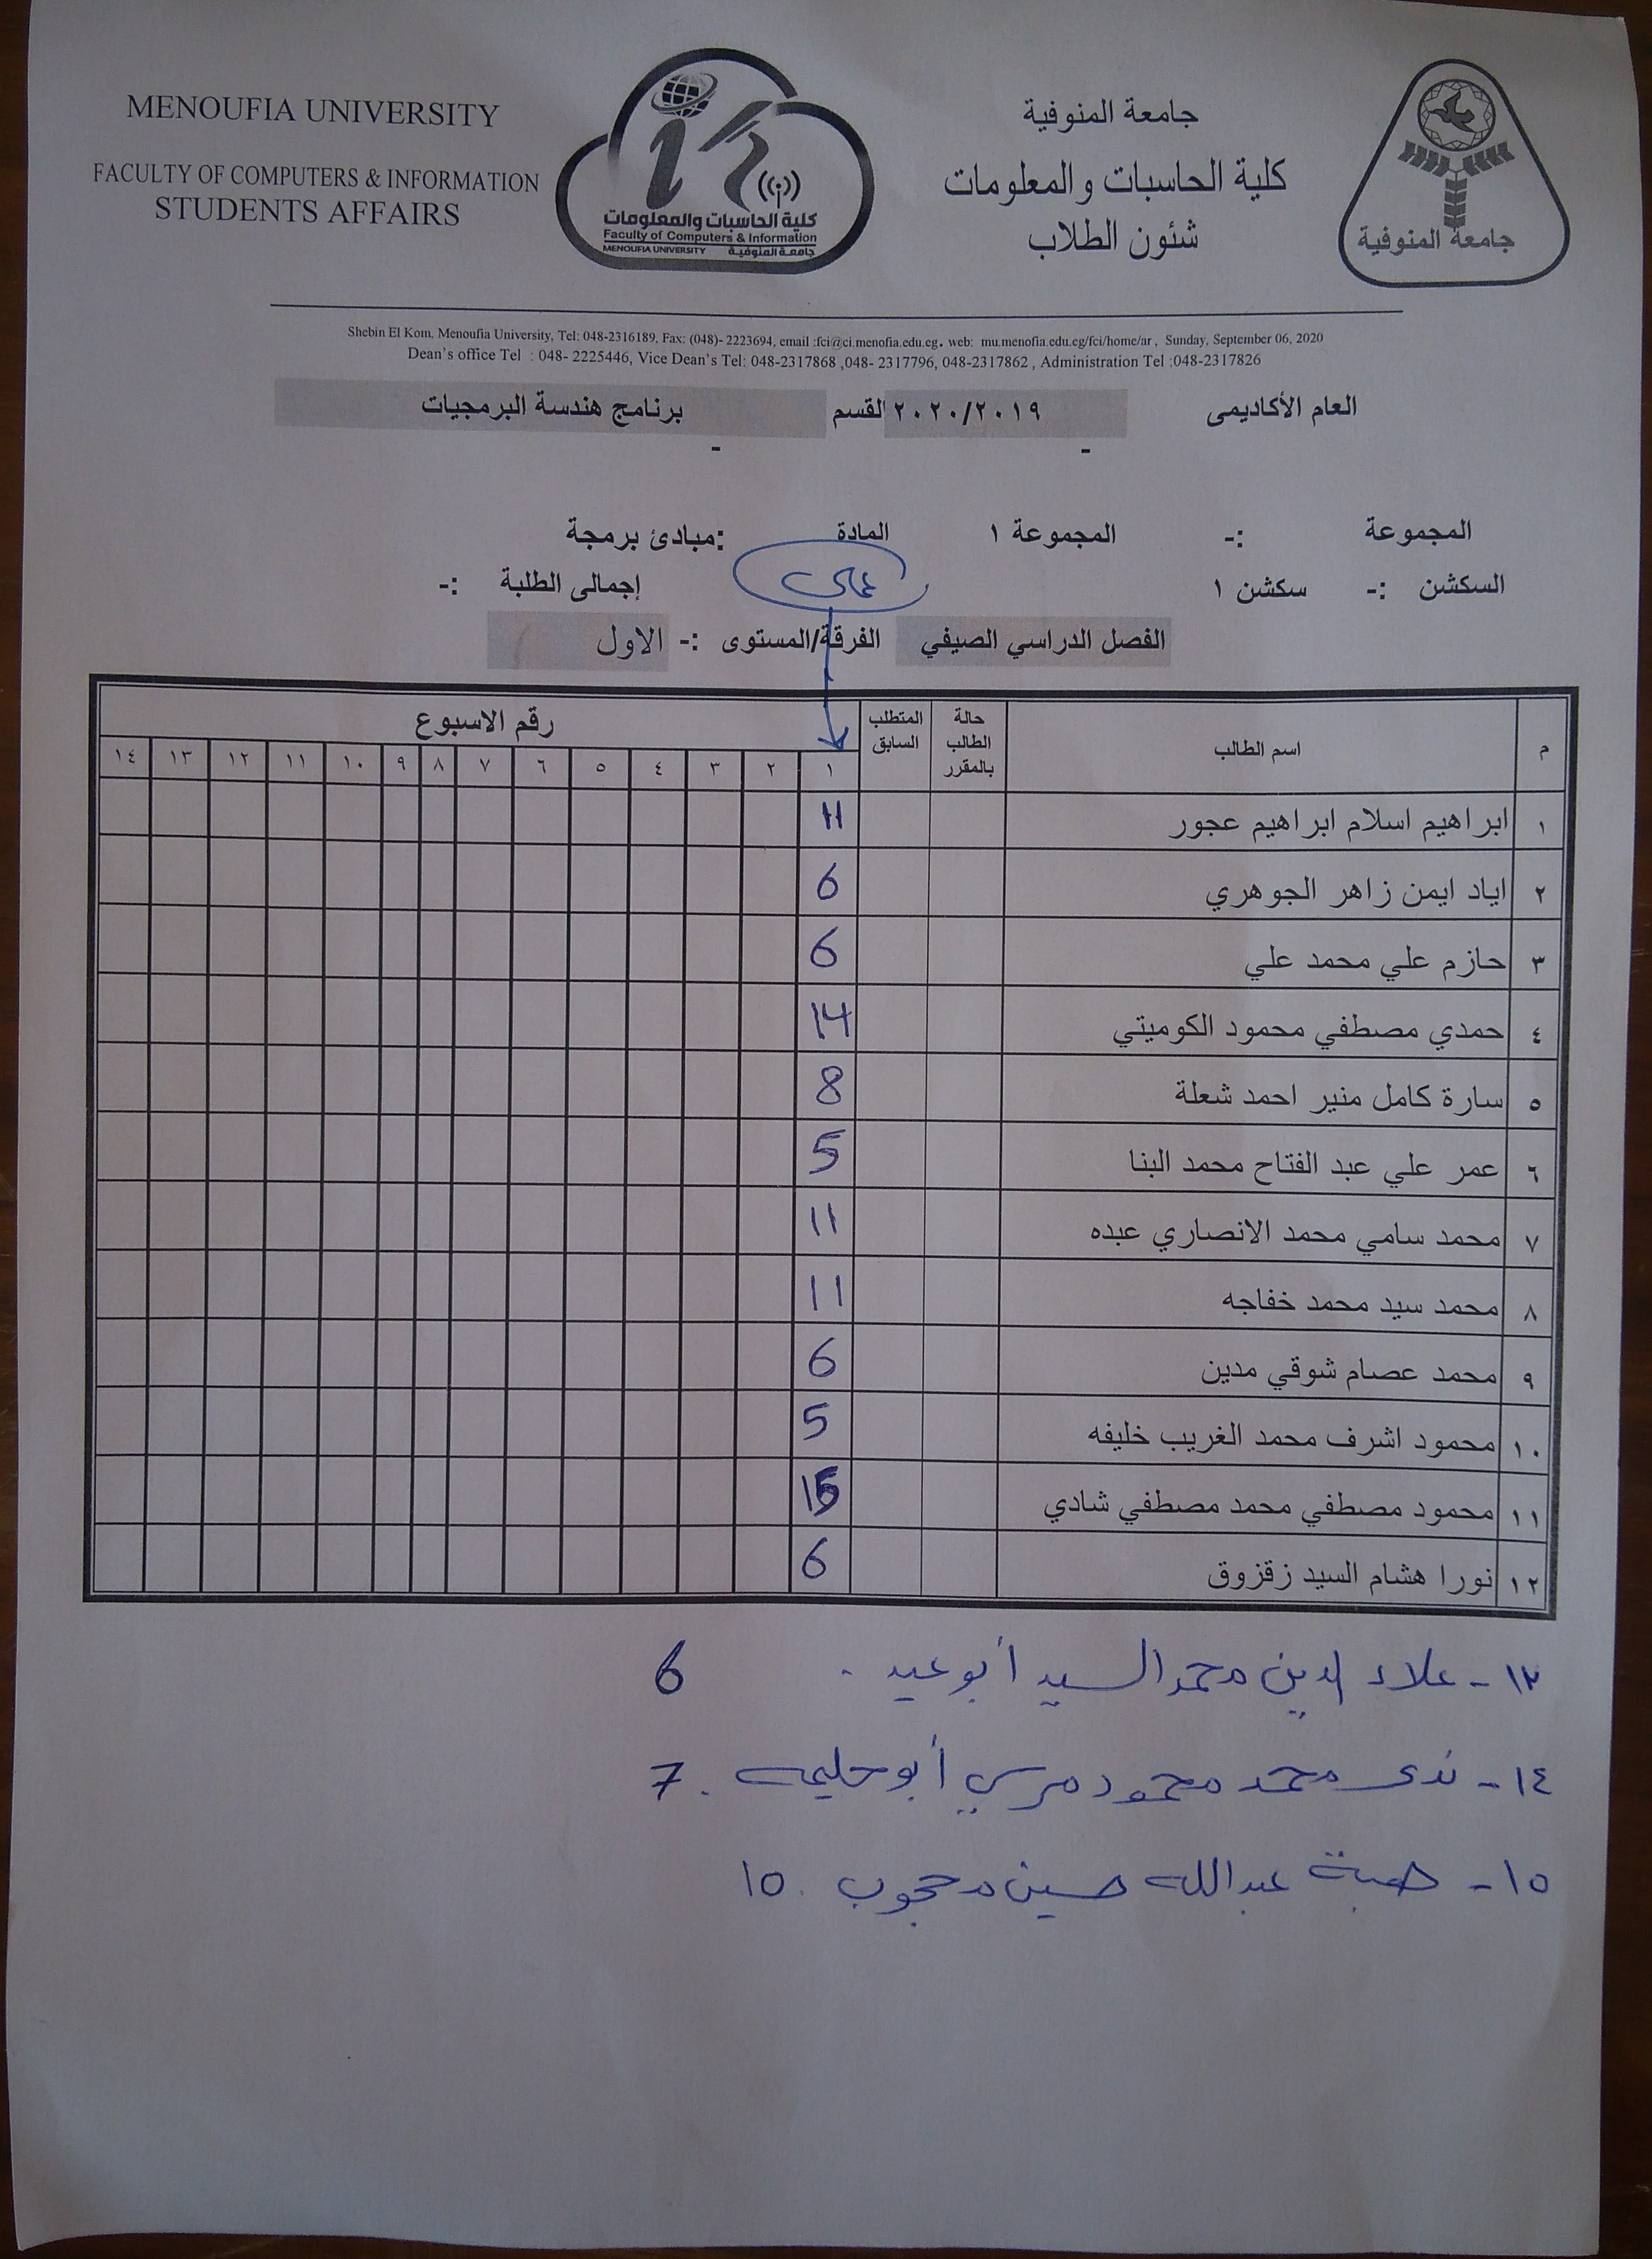 MENOUFIA UNIVERSITY
FACULTY OF COMPUTERS & INFORMATION
STUDENTS AFFAIRS
كلية الحاسبات والمعلومات
Faculty of Computers & Information
MENOUFIA UNIVERSITY جامعة المنوفية
جامعة المنوفية
كلية الحاسبات والمعلومات
شئون الطلاب
جامعة المنوفية
Shebin El Kom, Menoufia University, Tel: 048-2316189, Fax: (048)- 2223694, email :fci@ci.menofia.edu.eg. web: mu.menofia.edu.eg/fci/home/ar , Sunday, September 06, 2020
Dean's office Tel : 048- 2225446, Vice Dean's Tel: 048-2317868 ,048- 2317796, 048-2317862 , Administration Tel :048-2317826
العام الأكاديمى ٢٠٢٠/٢٠١٩ القسم برنامج هندسة البرمجيات
المجموعة :- المجموعة ١ المادة :مبادئ برمجة
السكشن :- سكشن ١ عملى إجمالى الطلبة :-
الفصل الدراسي الصيفي الفرقة/المستوى :- الاول
م اسم الطالب حالة الطالب بالمقرر المتطلب السابق رقم الاسبوع
١ ٢ ٣ ٤ ٥ ٦ ٧ ٨ ٩ ١٠ ١١ ١٢ ١٣ ١٤
١ ابراهيم اسلام ابراهيم عجور 11
٢ اياد ايمن زاهر الجوهري 6
٣ حازم علي محمد علي 6
٤ حمدي مصطفي محمود الكوميتي 14
٥ سارة كامل منير احمد شعلة 8
٦ عمر علي عبد الفتاح محمد البنا 5
٧ محمد سامي محمد الانصاري عبده 11
٨ محمد سيد محمد خفاجه 11
٩ محمد عصام شوقي مدين 6
١٠ محمود اشرف محمد الغريب خليفه 5
١١ محمود مصطفي محمد مصطفي شادي 15
١٢ نورا هشام السيد زقزوق 6
١٣- علاء الدين محمد السيد أبو عيد . 6
١٤- ندى محمد محمود مرسي أبو حليمه . 7
١٥- هبة عبد الله حسين محجوب . ١٥